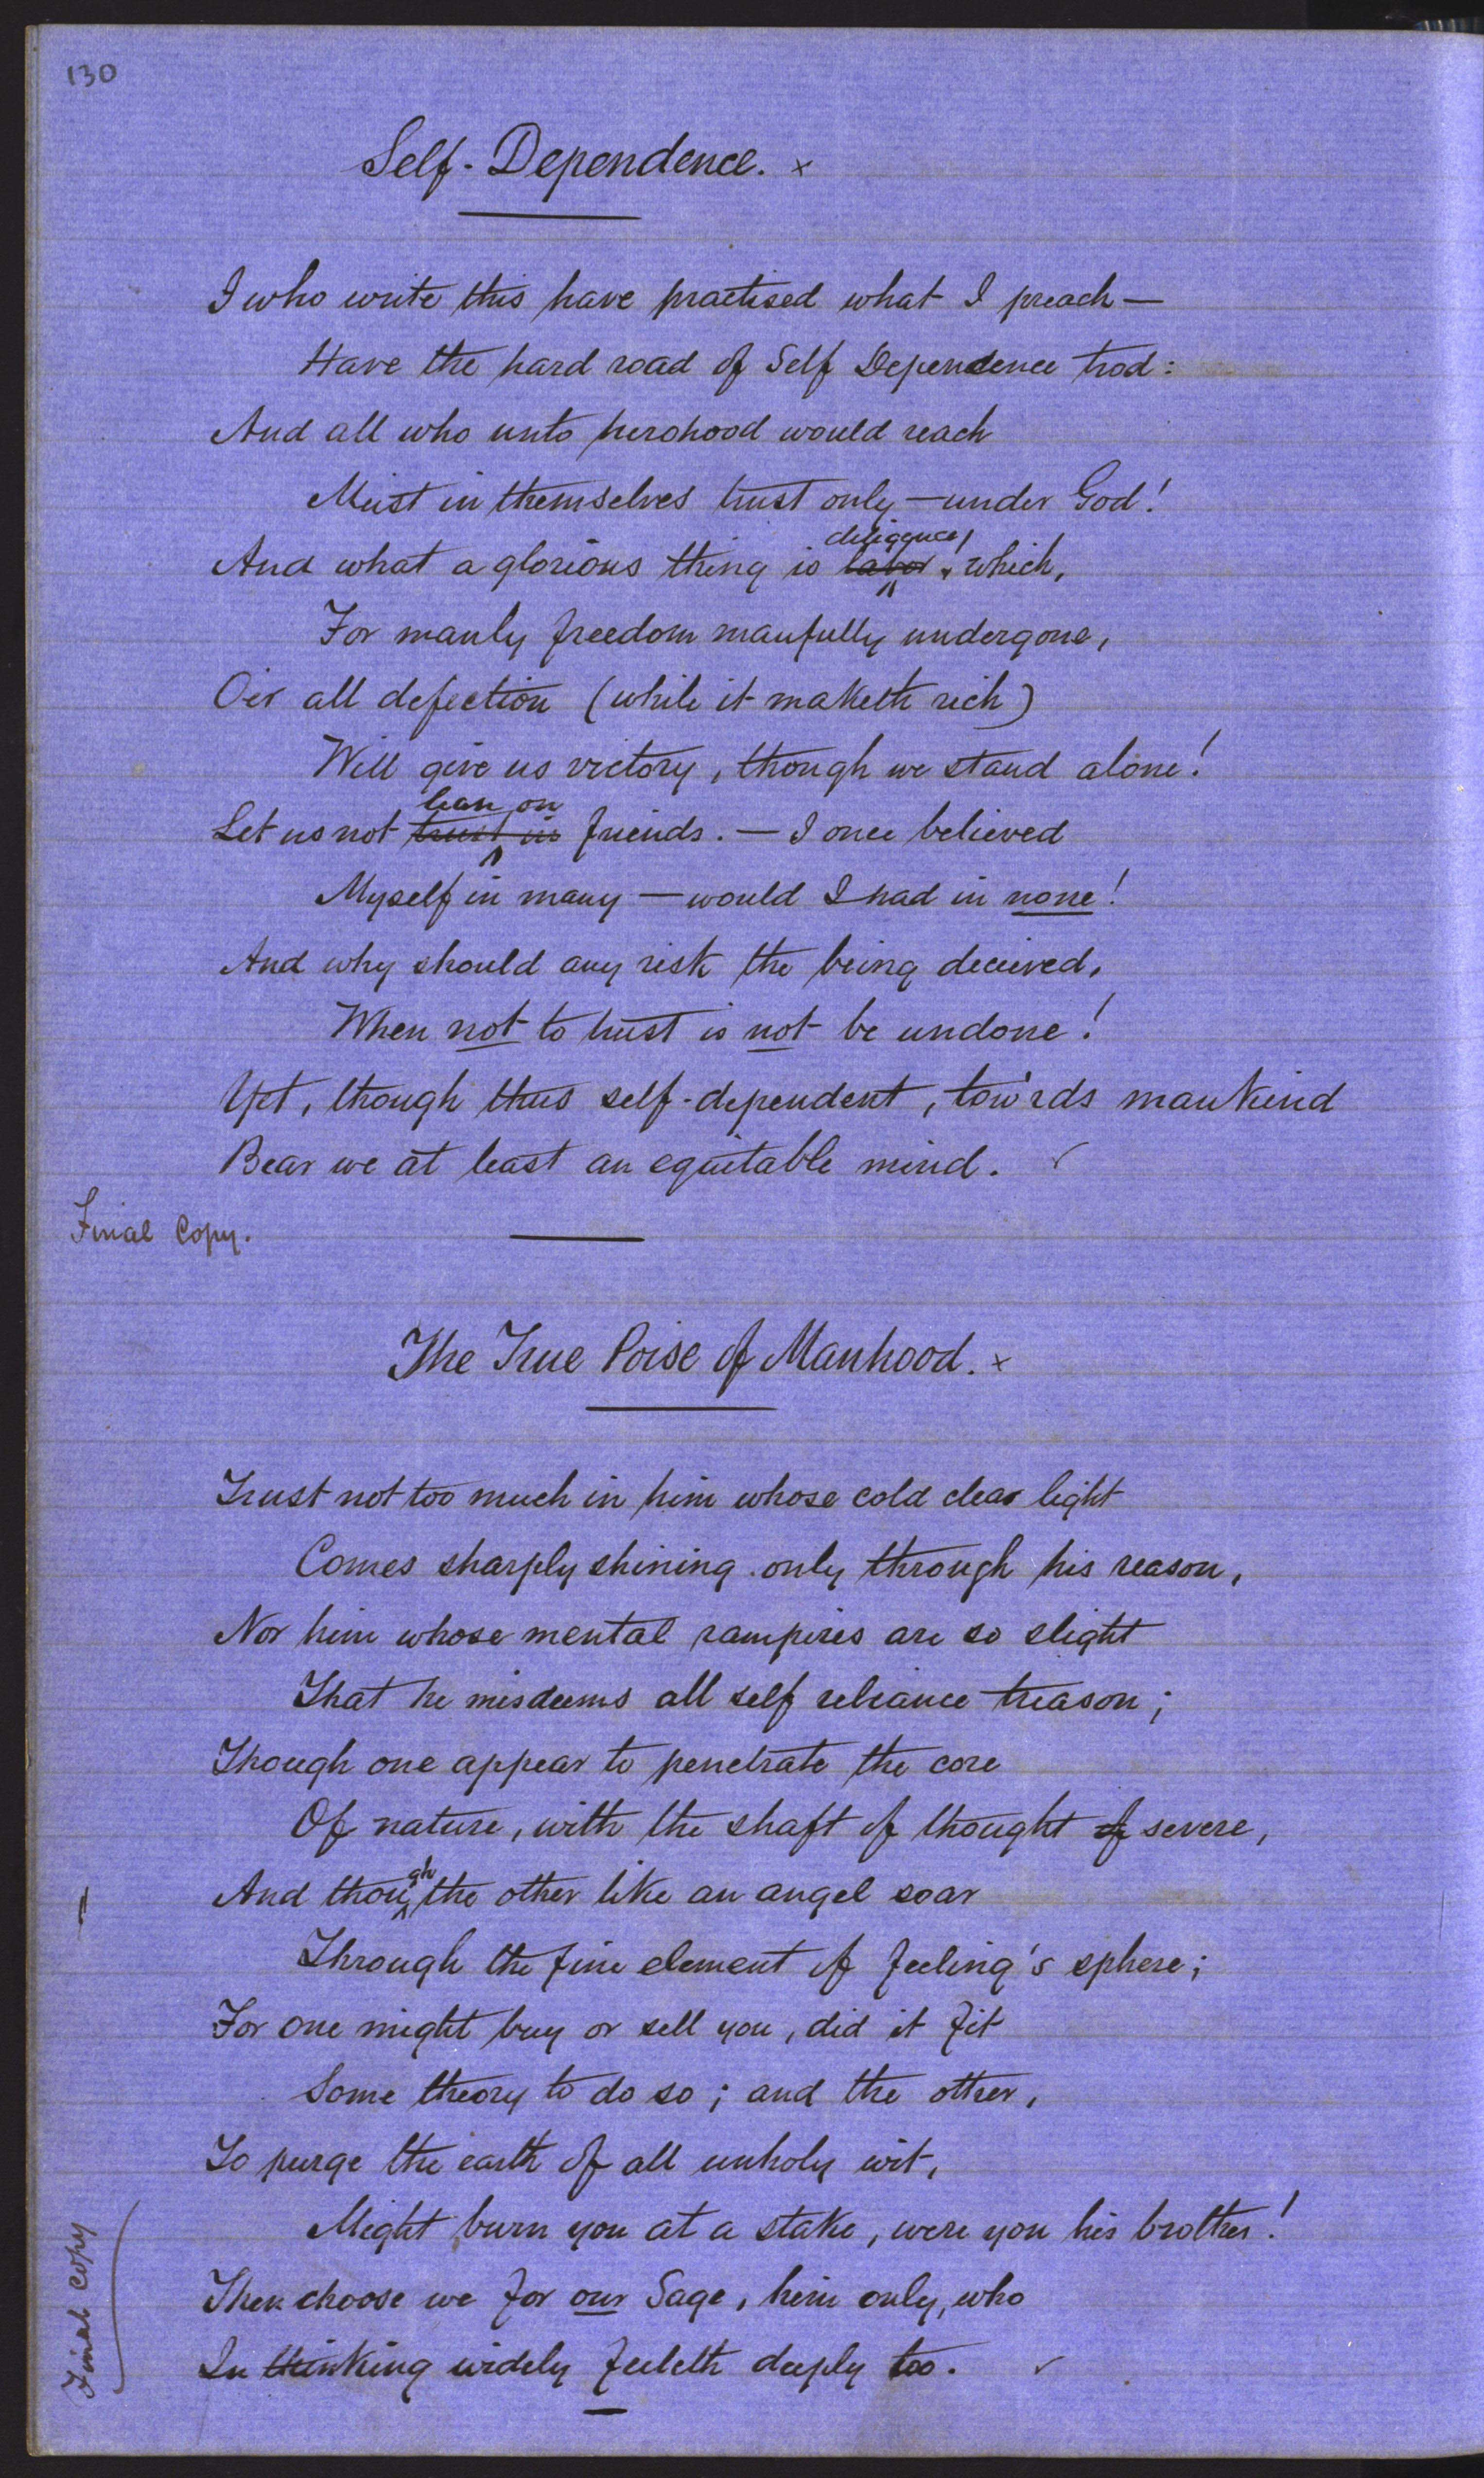 130
Self-Dependence. x
I who write this have practised what I preach —
Have the hard road of Self Dependence trod:
And all who unto herohood would reach
Must in themselves trust only — under God!
diligence,
And what a glorious thing is labor, which,
For manly freedom manfully undergone,
O'er all defection (while it maketh rich)
Will give us victory, though we stand alone!
lean on
Let us not trust in friends. — I once believed
Myself in many — would I had in none!
And why should any risk the being deceived,
When not to trust is not be undone!
Yet, though thus self-dependent, tow'rds mankind
Bear we at least an equitable mind. ✓
Final Copy.
The True Poise of Manhood. x
Trust not too much in him whose cold clear light
Comes sharply shining only through his reason,
Nor him whose mental rampires are so slight
That he misdeems all self reliance treason;
Though one appear to penetrate the core
Of nature, with the shaft of thought of severe,
And though the other like an angel soar
Through the fine element of feeling's sphere;
For one might buy or sell you, did it fit
Some theory to do so; and the other,
To purge the earth of all unholy wit,
Might burn you at a stake, were you his brother!
Then choose we for our Sage, him only, who
In thinking widely feeleth deeply too. ✓
Final Copy